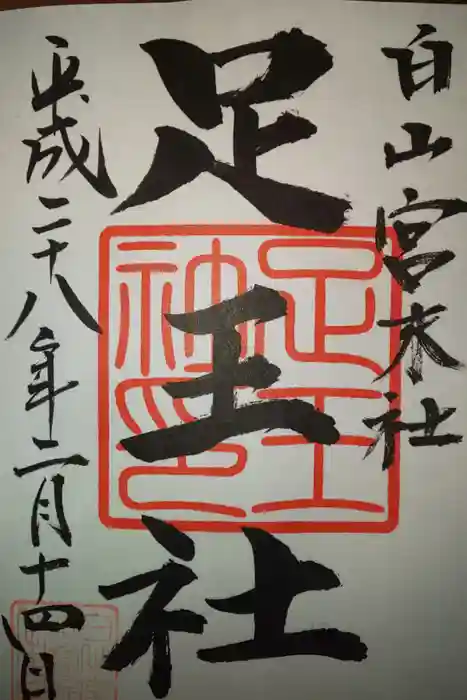 白山宮末社
足王社
足王
神印
平成二十八年二月十四日